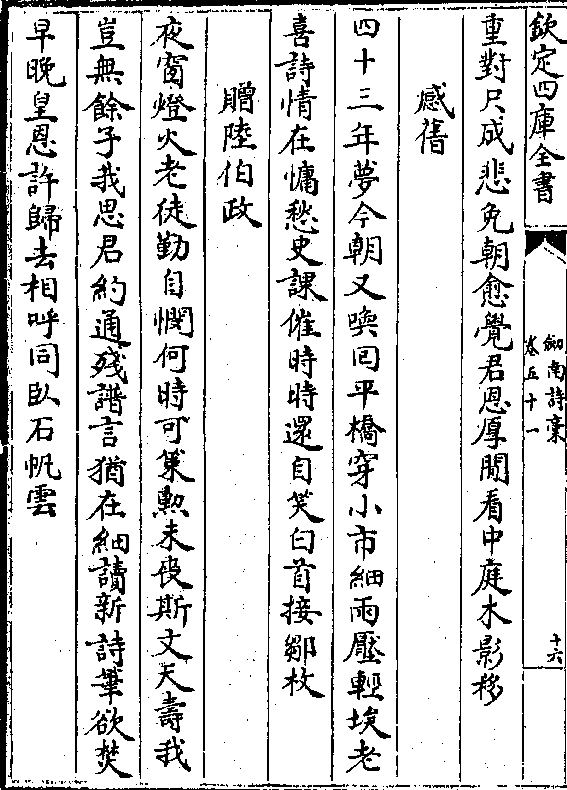 欽定四庫全書
劒南詩稾
卷五十一
十六
重對尺成悲免朝愈覺君恩厚閒看中庭木影移
感舊
四十三年夢今朝又喚回平橋穿小市細雨壓輕埃老
喜詩情在慵愁史課催時時還自笑白首接鄒枚
贈陸伯政
夜窗燈火老徒勤自憫何時可策勲未喪斯文天壽我
豈無餘子我思君約通殘譜言猶在細讀新詩筆欲焚
早晚皇恩許歸去相呼同臥石帆雲